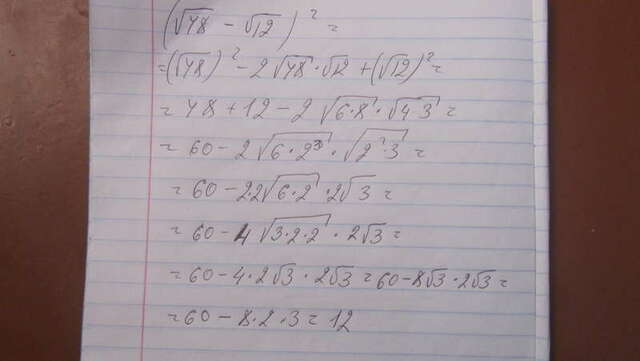 (√48 - √12)² =
= (√48)² - 2√48 · √12 + (√12)² =
= 48 + 12 - 2√6·8 · √4·3 =
= 60 - 2√6·2³ · √2²·3 =
= 60 - 2·2√6·2 · 2√3 =
= 60 - 4√3·2·2 · 2√3 =
= 60 - 4·2√3 · 2√3 = 60 - 8√3 · 2√3 =
= 60 - 8·2·3 = 12